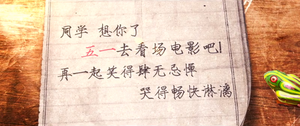 同学 想你了
五一去看场电影吧!
再一起笑得肆无忌惮
笑得畅快淋漓